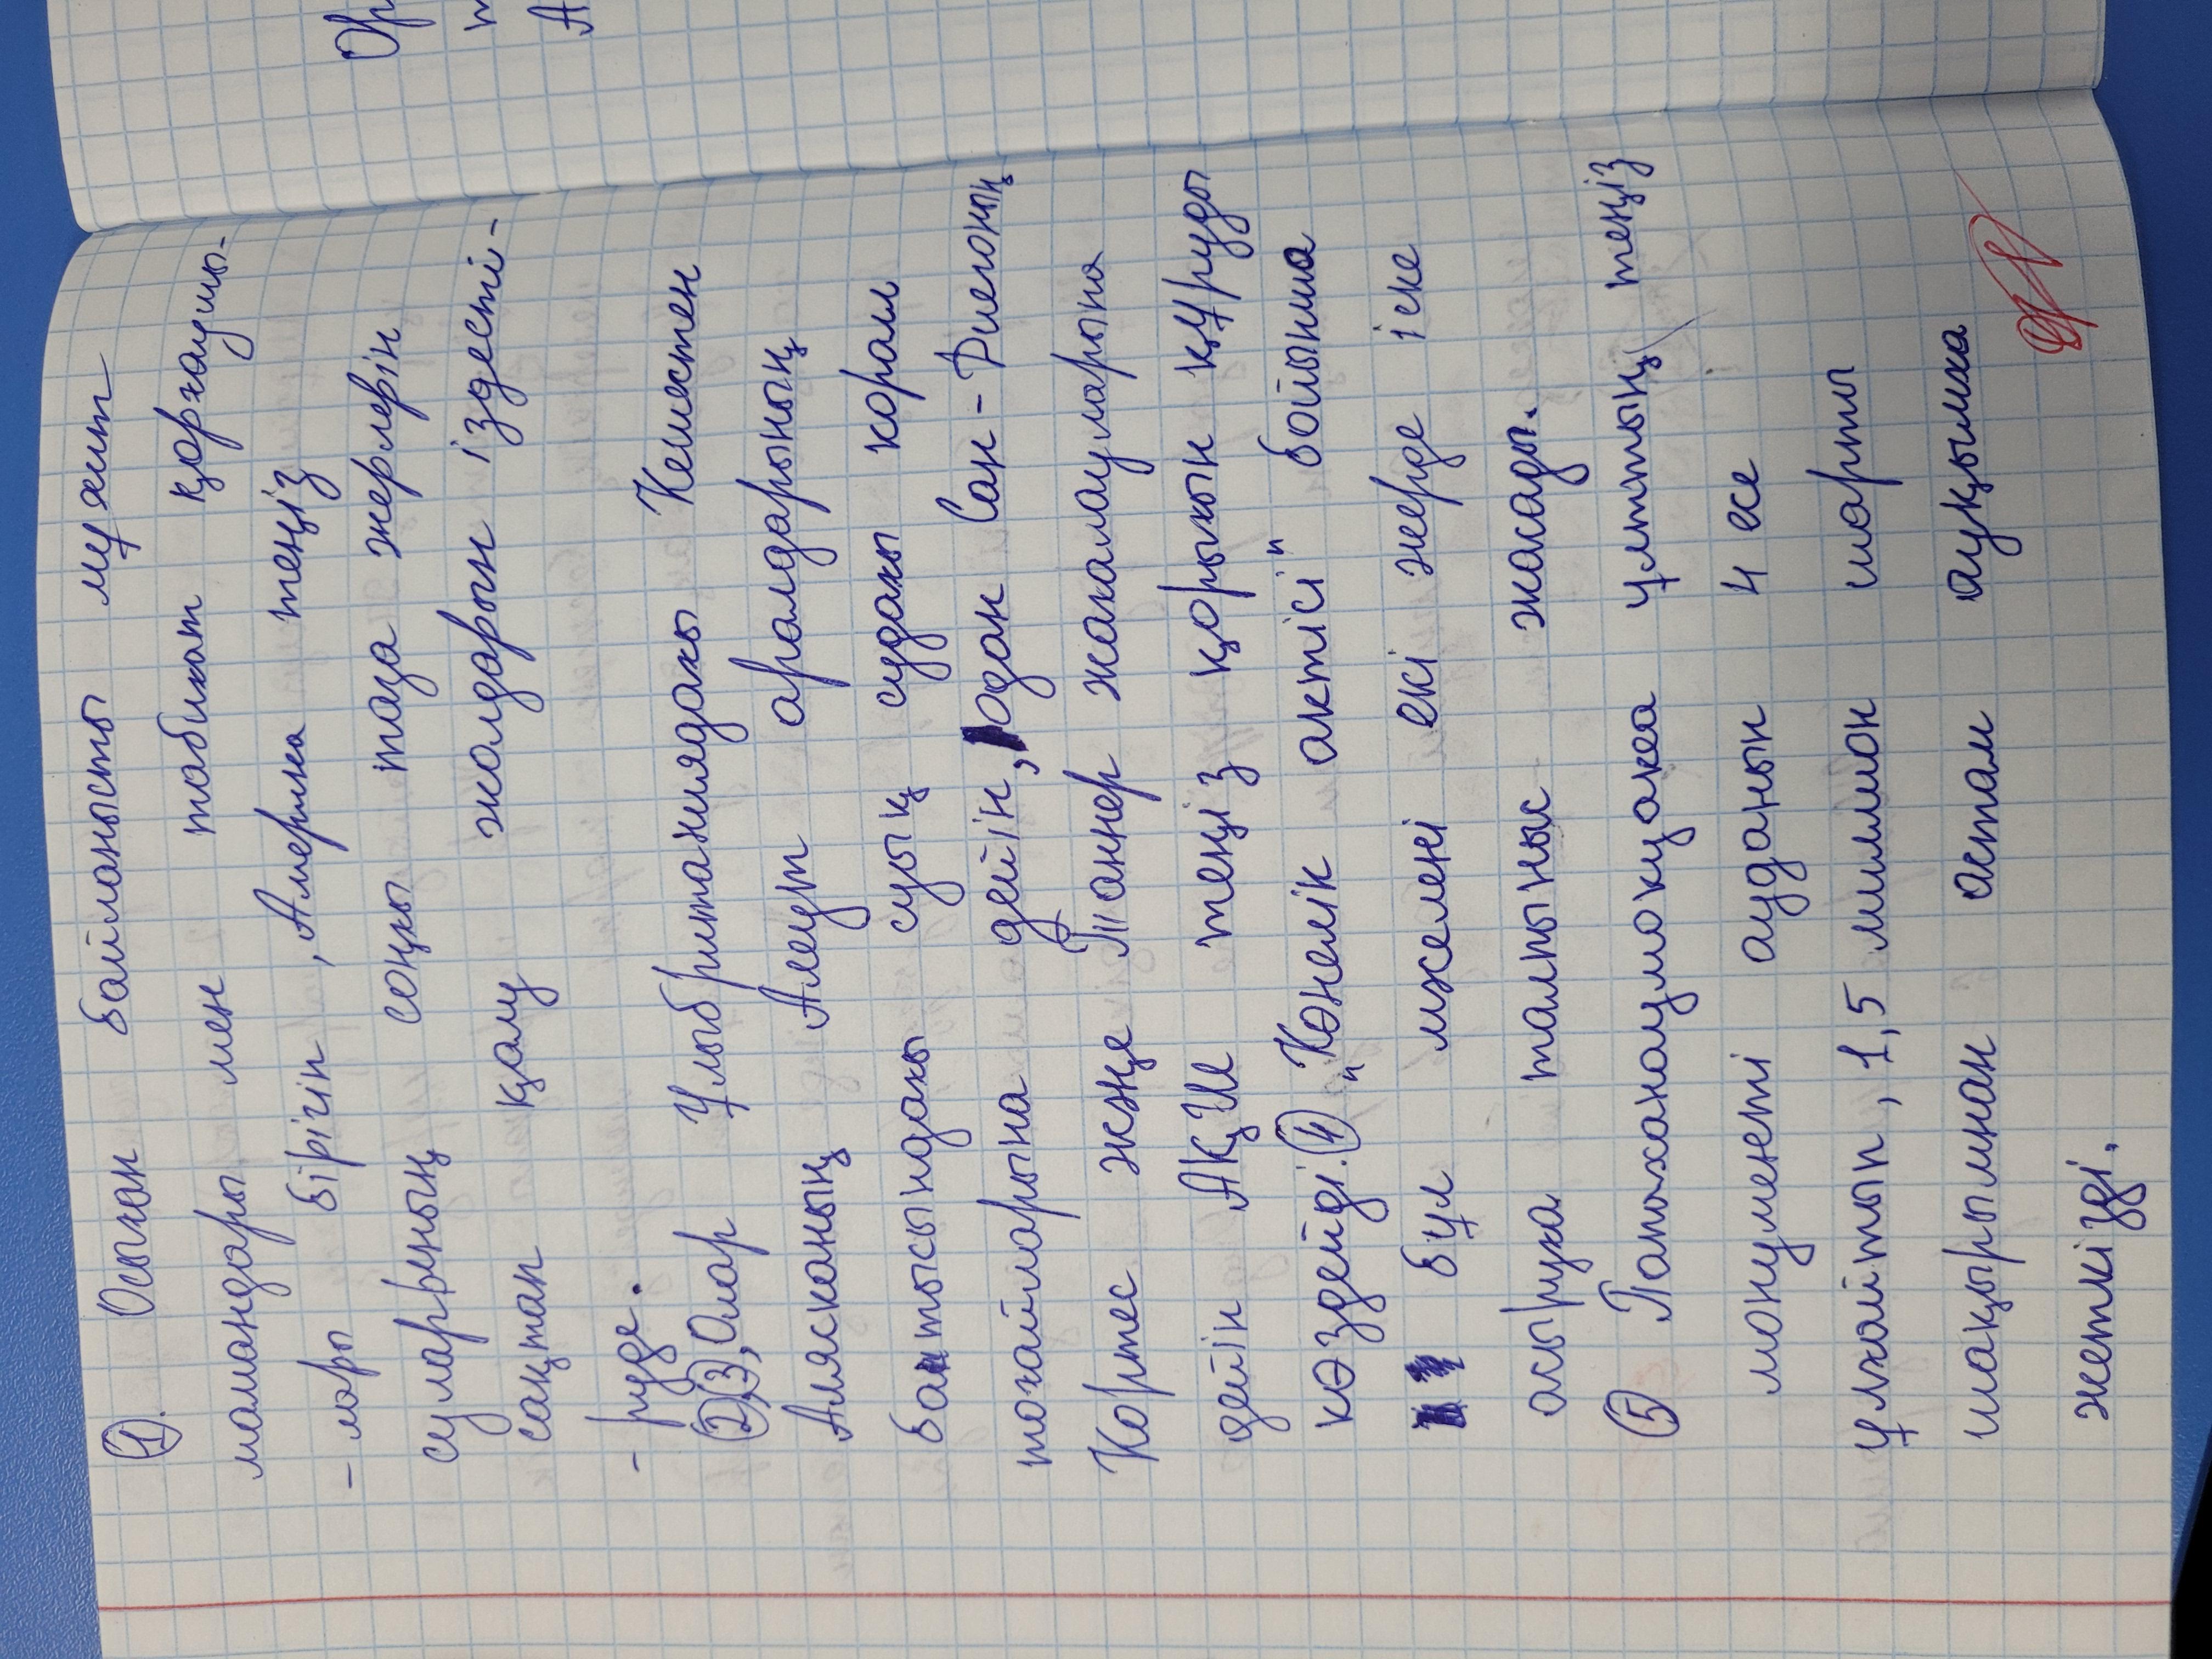 ①. Осыған байланысты мұхит
мамандары мен табиғат қорғаушы-
- лары бірігіп, Америка теңіз
суларының соңғы таза жерлерін
сақтап қалу жолдарын іздесті-
- руде.
②,③, Олар Ұлыбританиядағы Кеңестен
Алясканың Алеут аралдарының
батысындағы суық судағы корал
тоғайларына дейін, одан Сан-Диегоның
Кортес және Таннер жағалауларына
дейін АҚШ теңіз қорығын құруды
көздейді. ④ "Көнелік актісі" бойынша
бұл ижелені екі жерде іске
асыруға талпыныс жасады.
⑤ Папаханаумокуакеа ұлттың теңіз
монументі ауданын 4 есе
ұлғайтып, 1,5 миллион шаршы
шақырымнан астам ауқымға
жеткізді.
Ор
т
А